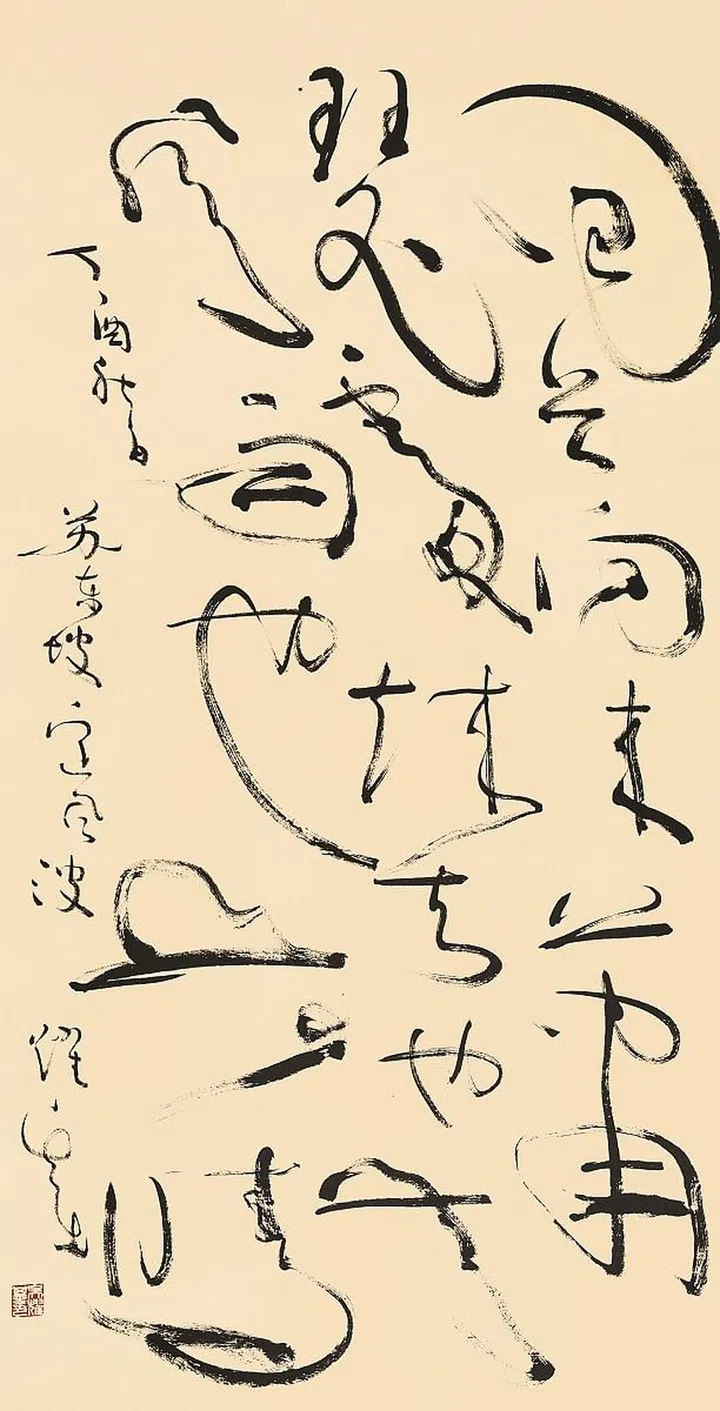 回首向来萧
瑟處歸去也无
风雨也无晴
丁酉秋月 苏东坡定风波 耀